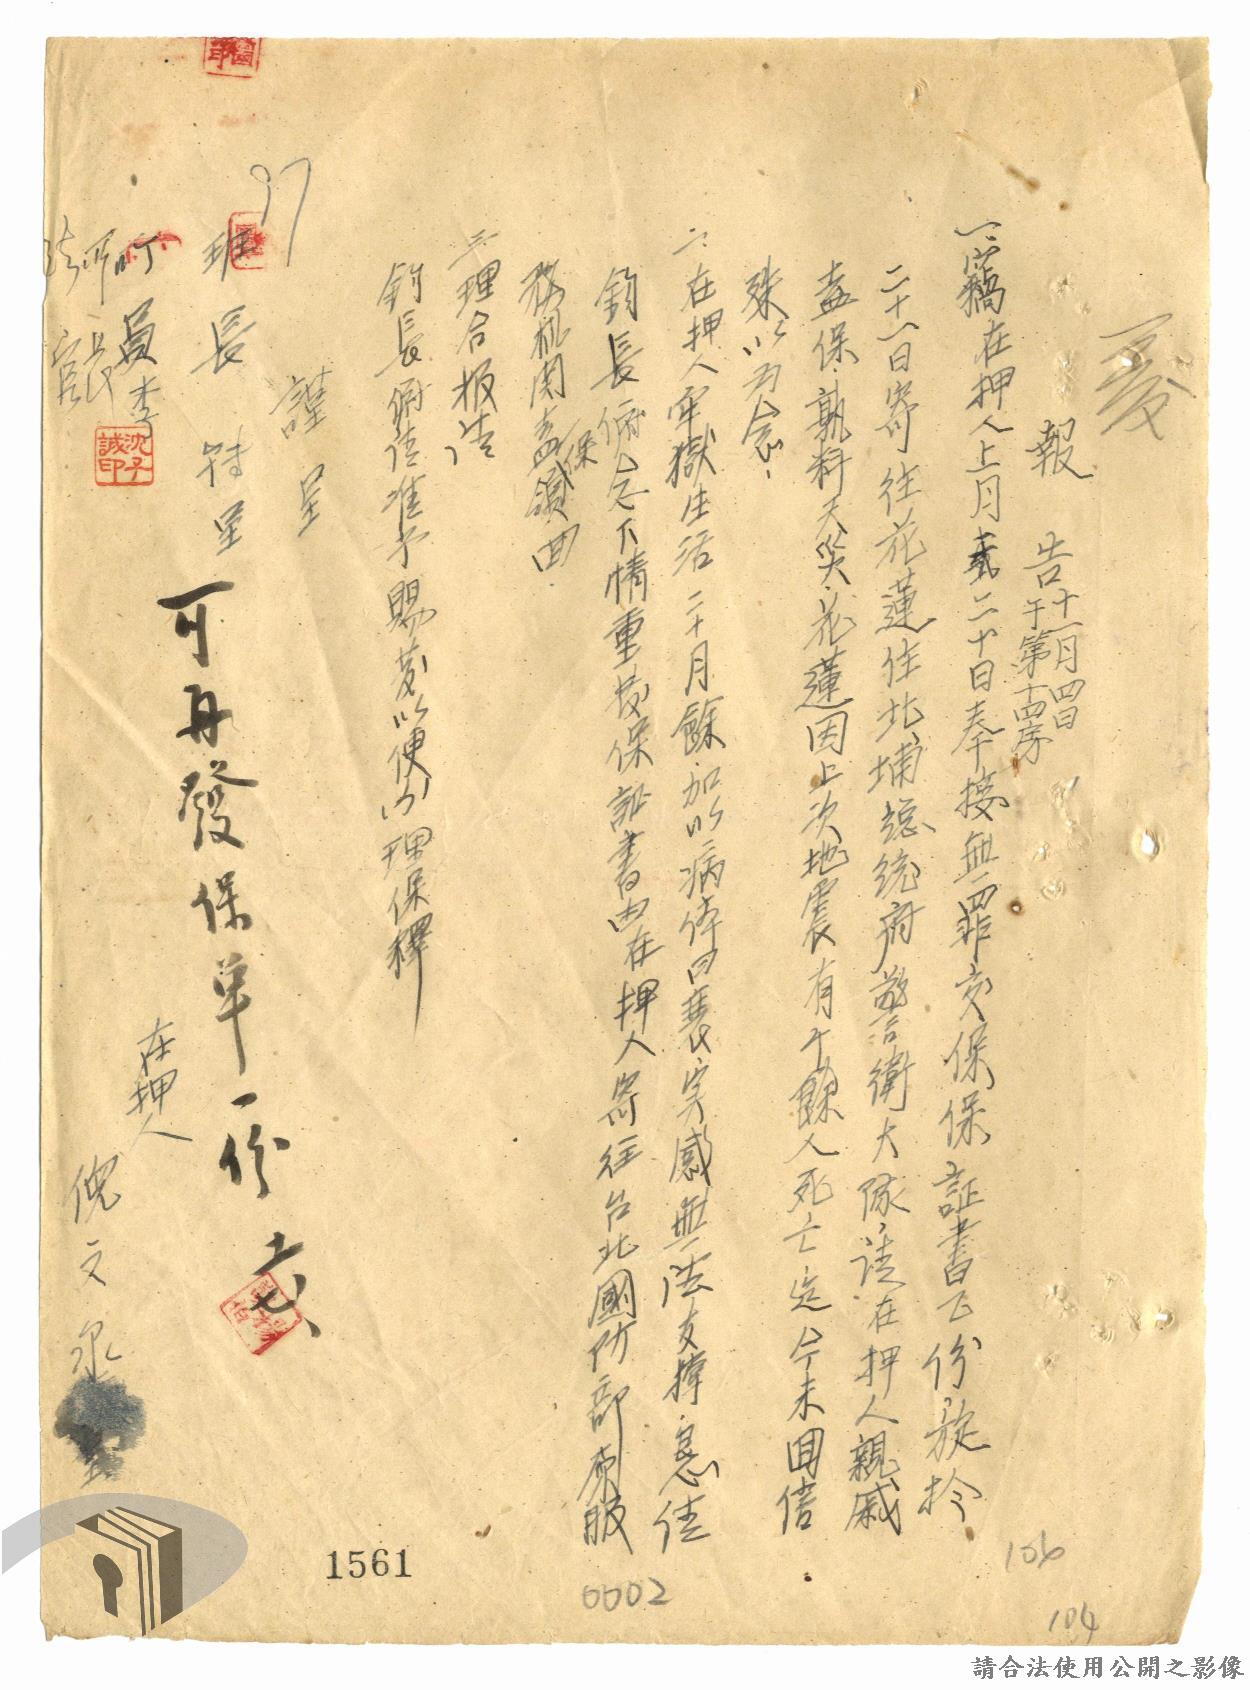 報告 十一月四日
于第十四房
一、竊在押人上月二十日奉接無罪交保保証書乙份旋於
二十一日寄往花蓮住北埔總統府警衛大隊請在押人親戚
盖保、孰料天災、花蓮因上次地震有千餘人死亡迄今未回信
殊以為念、
二、在押人牢獄生活二十月餘、加以病体日衰实感無法支撑、急待
鈞長俯念下情重發保証書由在押人寄往台北國防部原服
務机関盖保領回
三、理合报請
鈞長俯請准予賜發以便办理保釋
謹呈
班長 轉呈
員李
所長
官
可再發保單一份
在押人 倪文泉
沈子誠印
97
1561
0002
106
104
請合法使用公開之影像